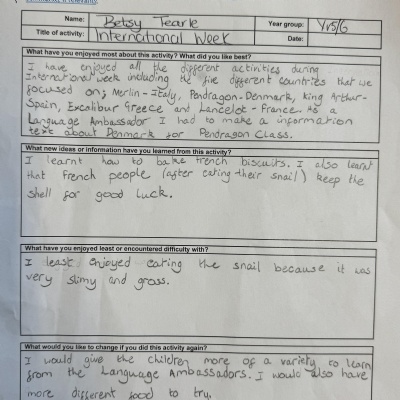 Name: Betsy Tearle
Year group: Yr5/6
Title of activity: International Week
Date:
What have you enjoyed most about this activity? What did you like best?
I have enjoyed all the different activities during
International week including the five different countries that we
focused on; Merlin - Italy, Pendragon - Denmark, King Arthur -
Spain, Excalibur Greece and Lancelot - France. As a
Language Ambassador I had to make a information
text about Denmark for Pendragon Class.
What new ideas or information have you learned from this activity?
I learnt how to bake french biscuits. I also learnt
that french people (after eating their snail) keep the
shell for good luck.
What have you enjoyed least or encountered difficulty with?
I least enjoyed eating the snail because it was
very slimy and gross.
What would you like to change if you did this activity again?
I would give the children more of a variety to learn
from the Language Ambassadors. I would also have
more different food to try.